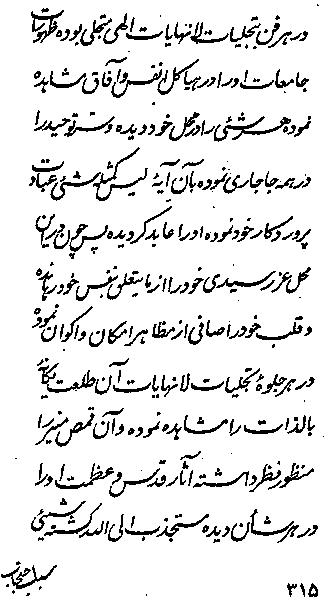 در هر فن بتجلیات لا نهایات الهی متجلی بوده ظهورات
جامعات او را در هیاکل انفس و آفاق مشاهده
نموده هر شئی را در محل خود دیده و سر توحید را
در همه جا جاری نموده بآن آیهٔ لیس کمثله شئی عبادت
پروردگار خود نموده او را عابد گردیده پس چون در این
محل عز رسیدی خود را از ما یتعلق بنفس خود رهانده
و قلب خود را صافی از مظاهر امکان و اکوان نموده
در هر جلوهٔ تجلیات لا نهایات آن طلعت یکتا
بالذات را مشاهده نموده و آن قمص منیر را
منظور نظر داشته آثار قدس و عظمت او را
در هر شأن دیده مستجذب الی الله گشته شئی
۳۱۵